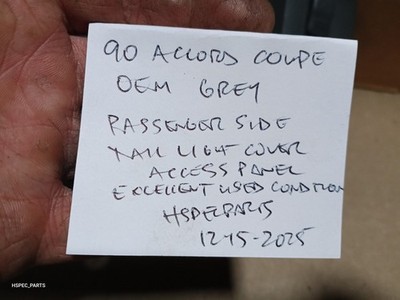 90 ACCORD COUPE
OEM GREY
PASSENGER SIDE
TAIL LIGHT COVER
ACCESS PANEL
EXCELLENT USED CONDITION
HSPECPARTS
12-15-2025
HSPEC_PARTS